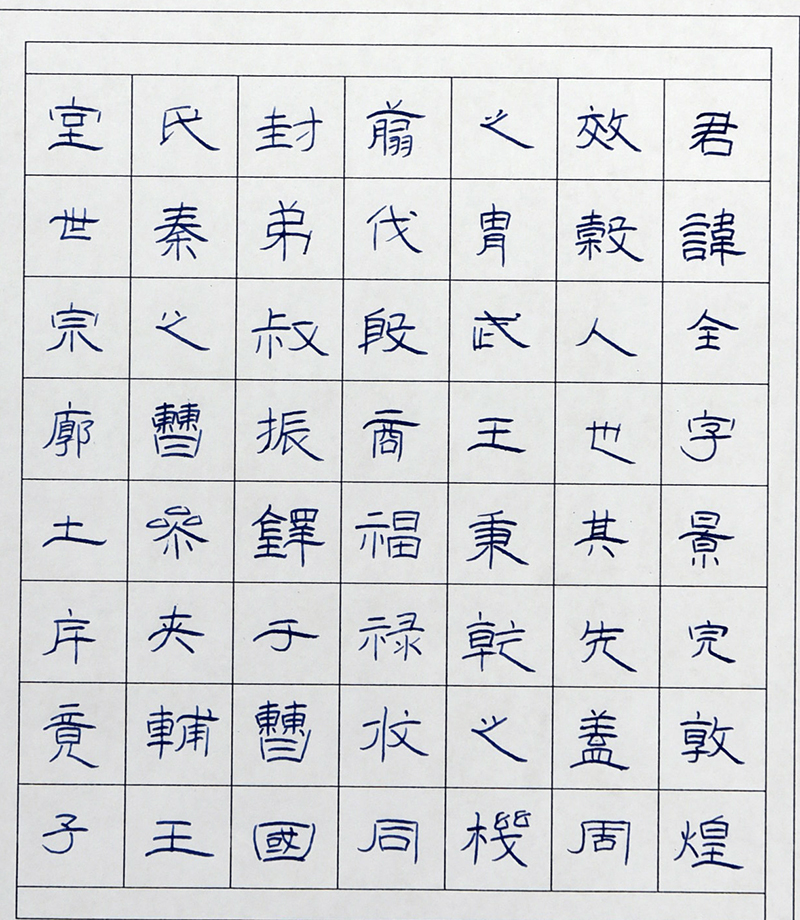 君諱全字景完敦煌
效穀人也其先蓋周
之胄武王秉乾之机
翦伐殷商福祿攸同
封弟叔振鐸于曹國
氏秦之曹參夾輔王
室世宗廓土斥竟子